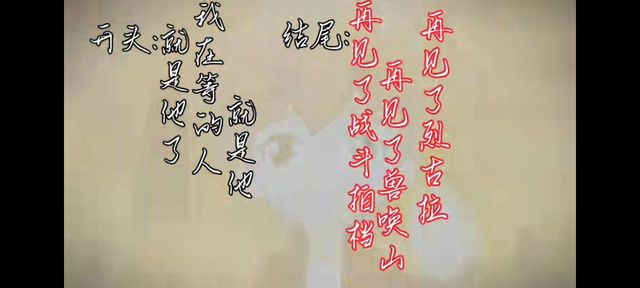 开头:
就是他了
我在等的人
就是他
结尾:
再见了战斗拍档
再见了兽唤山
再见了烈古拉